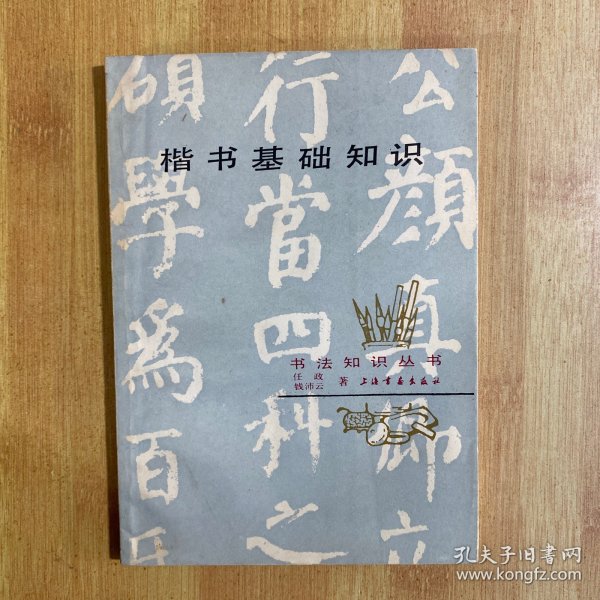 公顏真卿立
行當四科之
碩學為百氏
楷书基础知识
书法知识丛书
任政
钱沛云 著 上海书画出版社
孔夫子旧书网
www.kongfz.com